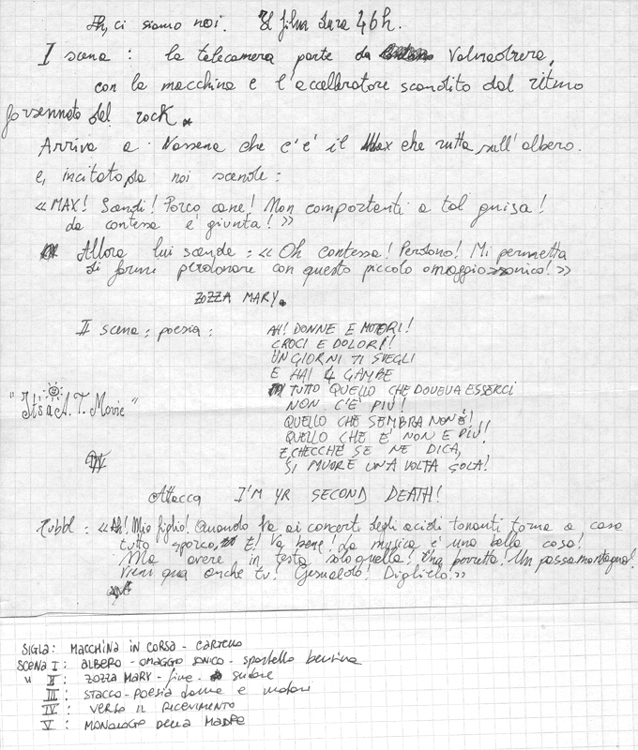 Ah, ci siamo noi. Il film dura 46h.
I scena: la telecamera parte da Valmadrera,
con la macchina e l'acceleratore scandito dal ritmo
forsennato del rock.
Arriva a Nassena che c'è il Max che rutta sull'albero.
e, incitato da noi scende:
«MAX! Scendi! Porco cane! Non comportarti a tal guisa!
La contessa è giunta!»
Allora lui scende: «Oh contessa! Perdono! Mi permetta
di farmi perdonare con questo piccolo omaggio sonico!»
ZOZZA MARY.
II scena: poesia:
AH! DONNE E MOTORI!
CROCI E DOLORI!
UN GIORNI TI SVEGLI
E HAI 4 GAMBE
TUTTO QUELLO CHE DOVEVA ESSERCI
NON C'È PIÙ!
QUELLO CHE SEMBRA NON È!
QUELLO CHE È NON È PIÙ!
E CHECCHÈ SE NE DICA,
SI MUORE UNA VOLTA SOLA!
"It's a A. T. Movie"
Attacca I'M YR SECOND DEATH!
«Ah! Mio figlio! Quando va ai concerti degli acidi tonanti torna a casa
tutto sporco, E! Va bene! La musica è una bella cosa!
Ma avere in testa solo quella! Una porretta! Un passamontagna!
Vieni qua anche tu! Gesualdo! Diglielo.»
SIGLA: MACCHINA IN CORSA - CARTELLO
SCENA I: ALBERO - OMAGGIO SONICO - sportello benzina
" II: ZOZZA MARY - fine - sudore
III: STACCO - POESIA donne e motori
IV: VERSO IL RICEVIMENTO
V: MONOLOGO DELLA MADRE